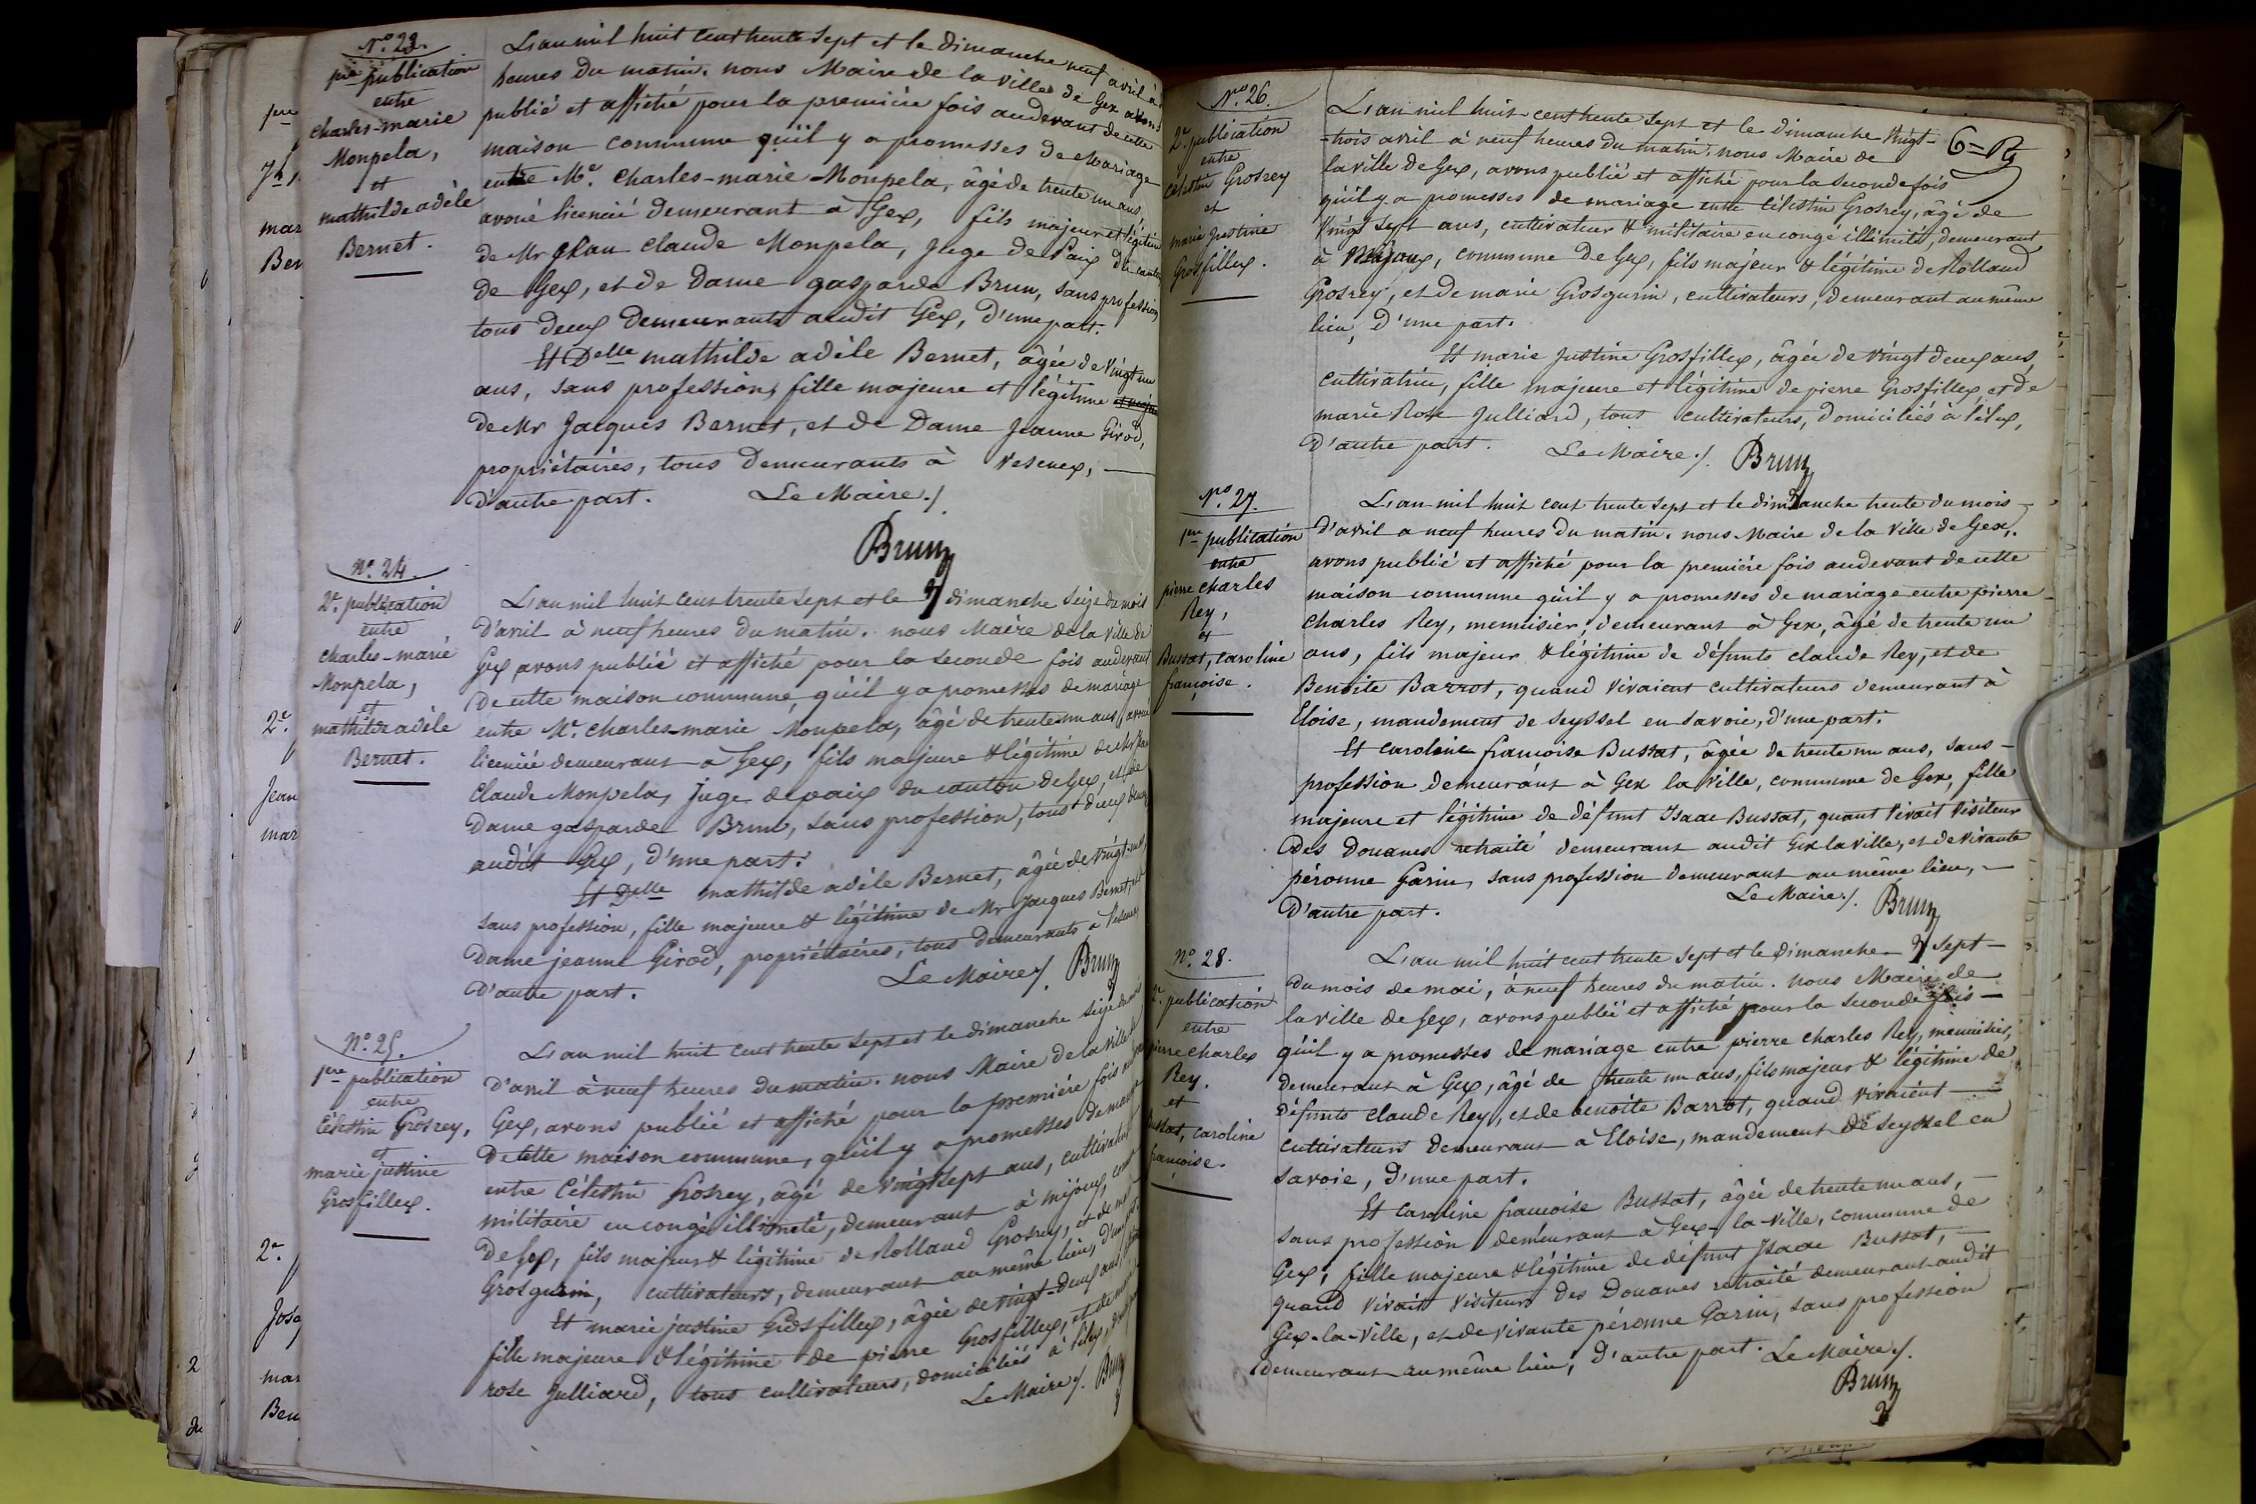 N.º 23.
1re publication
entre
charles-marie
Monpela,
et
mathilde adèle
Bernet.
L'an mil huit cent trente sept et le dimanche neuf avril à
heures du matin. nous Maire de la ville de Gex avons
publié et affiché pour la première fois audevant de cette
maison commune qu'il y a promesses de mariage
entre Me. Charles-marie Monpela, âgé de trente un ans,
avoué licencié demeurant à Gex, fils majeur et légitime
de Mr Jean Claude Monpela, Juge de Paix du canton
de Gex, et de Dame gasparde Brun, sans profession
tous deux demeurants audit Gex, d'une part.
Et Delle mathilde adèle Bernet, âgée de vingt un
ans, sans profession, fille majeure et légitime
de Mr Jacques Bernet, et de Dame Jeanne Girod,
propriétaires, tous demeurants à Vesenex,
d'autre part. Le Maire./.
Brun
N.º 24.
2e. publication
entre
charles-marie
Monpela,
et
mathilde adèle
Bernet.
L'an mil huit cent trente sept et le dimanche seize du mois
d'avril à neuf heures du matin. nous Maire de la ville de
Gex avons publié et affiché pour la seconde fois audevant
de cette maison commune, qu'il y a promesses de mariage
entre Me. charles-marie Monpela, âgé de trente un ans avoué
licencié demeurant à Gex, fils majeure & légitime de Mr Jean
Claude Monpela, Juge de paix du canton de Gex, et de
Dame gasparde Brun, sans profession, tous deux
audit Gex, d'une part.
Et Delle mathilde adèle Bernet, âgée de vingt-un
sans profession, fille majeure & légitime de Mr Jacques Bernet, et
Dame jeanne Girod, propriétaires, tous demeurants à Vesenex
d'autre part. Le Maire./. Brun
N.º 25.
1re publication
entre
Célestin Grosrey,
et
marie justine
Grosfillex.
L'an mil huit cent trente sept et le dimanche seize du mois
d'avril à neuf heures du matin. nous Maire de la ville de
Gex, avons publié et affiché pour la première fois
de cette maison commune, qu'il y a promesses de
entre Célestin Grosrey, âgé de vingt sept ans, cultivateur
militaire en congé illimité, demeurant à mijoux,
de Gex, fils majeur & légitime de Rolland Grosrey, et de
Grosgurin, cultivateurs, demeurant au même lieu, d'une part.
Et marie justine Grosfillex, âgée de vingt-deux ans
fille majeure & légitime de pierre Grosfillex, et de
rose Julliard, tous cultivateurs, domiciliés à lélex,
Le Maire./. Brun
N.º 26.
2e. publication
entre
célestin Grosrey
et
marie justine
Grosfillex.
L'an mil huit cent trente sept et le dimanche vingt-
trois avril à neuf heures du matin, nous Maire de
6=
la ville de Gex, avons publié et affiché pour la seconde fois
qu'il y a promesses de mariage entre célestin Grosrey, âgé de
vingt sept ans, cultivateur & militaire en congé illimité, demeurant
à mijoux, commune de Gex, fils majeur & légitime de Rolland
Grosrey, et de marie Grosgurin, cultivateurs, demeurant au même
lieu, d'une part.
Et marie justine Grosfillex, âgée de vingt deux ans
cultivatrice, fille majeure et légitime de pierre Grosfillex, et de
marie Rose Julliard, tous cultivateurs, domiciliés à lélex,
d'autre part. Le Maire./. Brun
N.º 27.
1re publication
entre
pierre charles
Rey,
et
Bussat, caroline
françoise.
L'an mil huit cent trente sept et le dimanche trente du mois
d'avril a neuf heures du matin. nous Maire de la ville de Gex,
avons publié et affiché pour la première fois audevant de cette
maison commune qu'il y a promesses de mariage entre pierre
charles Rey, menuisier, demeurant à Gex, âgé de trente un
ans, fils majeur & légitime de défunts claude Rey, et de
Benoite Barrot, quand vivaient cultivateurs demeurant à
Eloise, mandement de Seyssel en Savoie, d'une part.
Et caroline françoise Bussat, âgée de trente un ans, sans
profession demeurant à Gex la ville, commune de Gex, fille
majeure et légitime de défunt Isaac Bussat, quant vivait visiteur
des Douanes retraité demeurant audit Gex la ville, et de vivante
péronne Garin, sans profession demeurant au même lieu,
d'autre part. Le Maire./. Brun
N.º 28.
2e. publication
entre
pierre charles
Rey.
et
Bussat, caroline
françoise.
L'an mil huit cent trente sept et le dimanche sept
du mois de mai, à neuf heures du matin. nous Maire de
la ville de Gex, avons publié et affiché pour la seconde fois
qu'il y a promesses de mariage entre pierre charles Rey, menuisier,
demeurant à Gex, âgé de trente un ans, fils majeur & légitime de
défunts claude Rey, et de benoîte Barrot, quand vivaient
cultivateurs demeurant à Eloise, mandement de Seyssel en
Savoie, d'une part.
Et caroline françoise Bussat, âgée de trente un ans,
sans profession demeurant à Gex-la-ville, commune de
Gex, fille majeure & légitime de défunt Isaac Bussat,
quand vivait visiteur des Douanes retraité demeurant audit
Gex-la-ville, et de vivante péronne Garin, sans profession
demeurant au même lieu, d'autre part. Le Maire./.
Brun